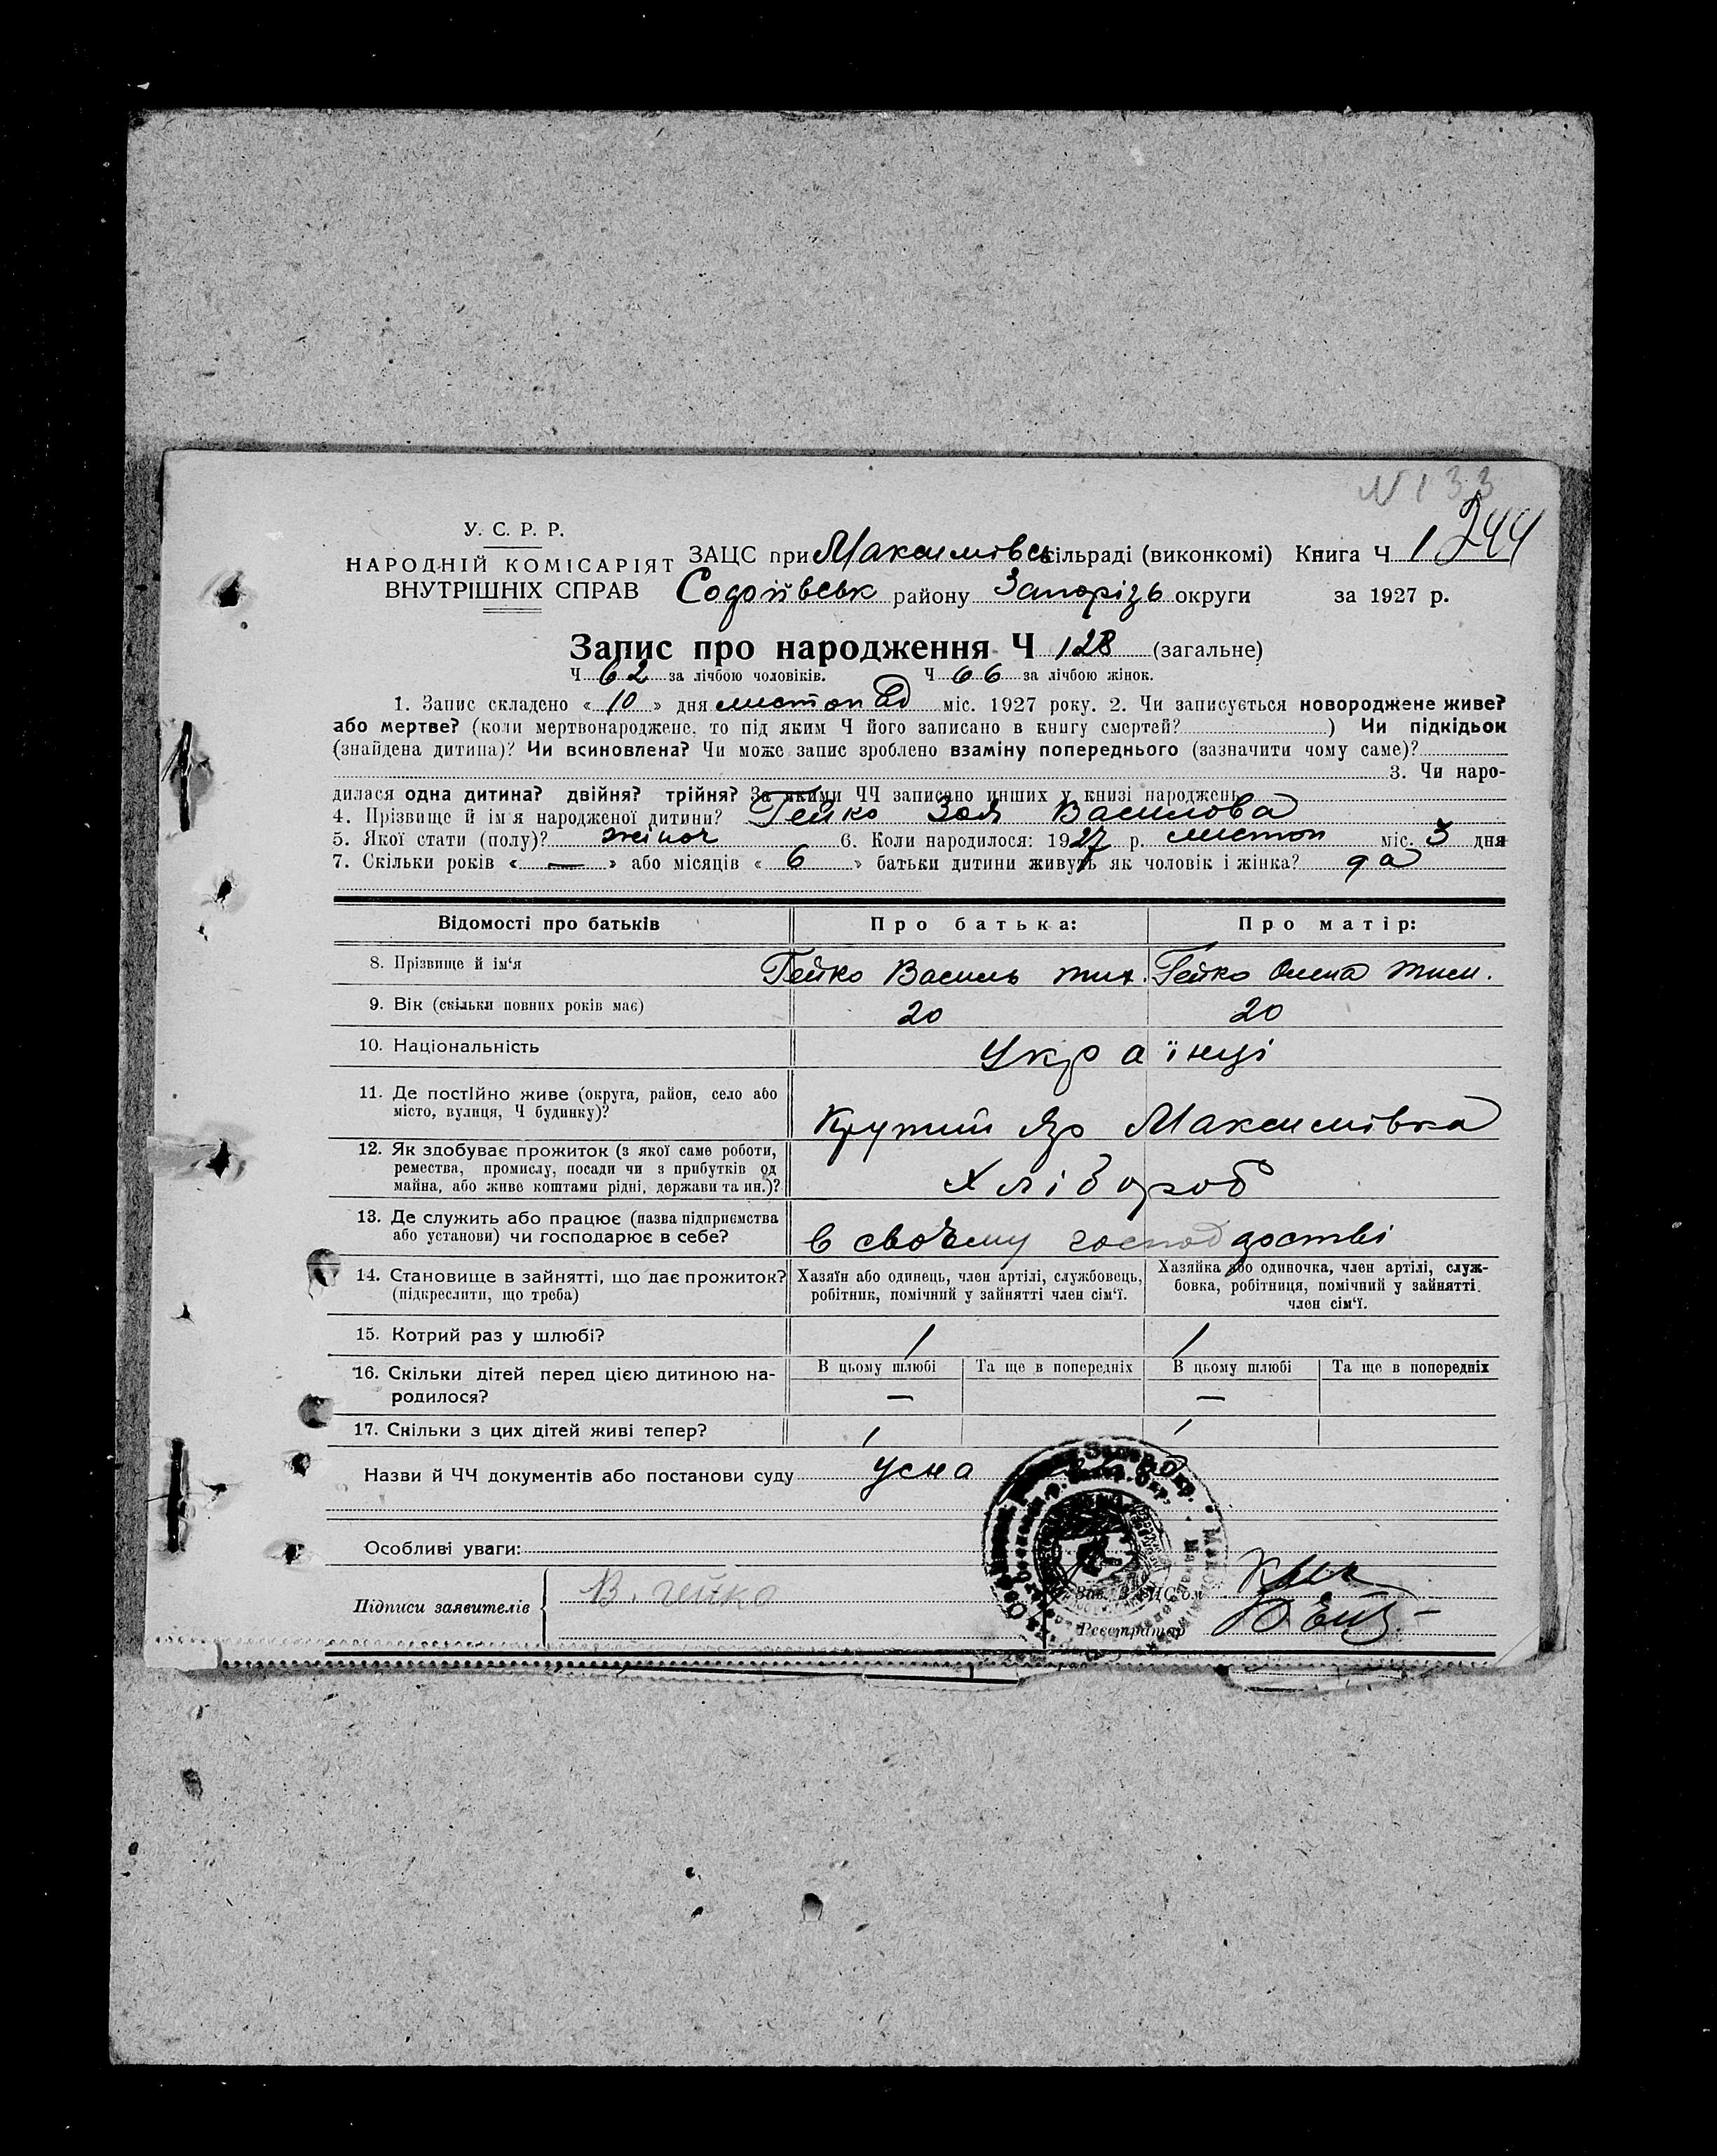 N 133
У. С. Р. Р.
НАРОДНІЙ КОМІСАРІЯТ
ВНУТРІШНІХ СПРАВ
ЗАЦС при Максимівськ сільраді (виконкомі) Книга Ч 1 244
району Запорізь округи за 1927 р.
Запис про народження Ч 128 (загальне)
Ч 62 за лічбою чоловіків. Ч 66 за лічбою жінок.
1. Запис складено « 10 » дня листопад міс. 1927 року. 2. Чи записується новороджене живе?
або мертве? (коли мертвонароджене, то під яким Ч його записано в книгу смертей? ) Чи підкідьок
(знайдена дитина)? Чи всиновлена? Чи може запис зроблено взаміну попереднього (зазначити чому саме)?
3. Чи наро-
дилася одна дитина? двійня? трійня? За якими ЧЧ записано инших у книзі народжень
4. Прізвище й ім'я народженої дитини? Гейко Зоя Василова
5. Якої стати (полу)? жіноч 6. Коли народилося: 1927 р. листоп міс. 3 дня
7. Скільки років « — » або місяців « 6 » батьки дитини живуть як чоловік і жінка? да
Відомості про батьків Про батька: Про матір:
8. Прізвище й ім'я Гейко Василь Тих. Гейко Олена Тим.
9. Вік (скільки повних років має) 20 20
10. Національність Українці
11. Де постійно живе (округа, район, село або
місто, вулиця, Ч будинку)? Крутий Яр Максимівка
12. Як здобуває прожиток (з якої саме роботи,
ремества, промислу, посади чи з прибутків од
майна, або живе коштами рідні, держави та ин.)? Хлібороб
13. Де служить або працює (назва підприємства
або установи) чи господарює в себе? в своєму
14. Становище в зайнятті, що дає прожиток?
(підкреслити, що треба)
Хазяїн або одинець, член артілі, службовець,
робітник, помічний у зайнятті член сім'ї.
Хазяйка або одиночка, член артілі, служ-
бовка, робітниця, помічний у зайнятті
член сім'ї.
15. Котрий раз у шлюбі? 1 1
16. Скільки дітей перед цією дитиною на-
родилося?
В цьому шлюбі Та ще в попередніх В цьому шлюбі Та ще в попередніх
— —
17. Скільки з цих дітей живі тепер? 1 1
Назви й ЧЧ документів або постанови суду усна
Особливі уваги:
Підписи заявителів В. Гейко
Зав. ЗАЦС'ом
Реєстратор